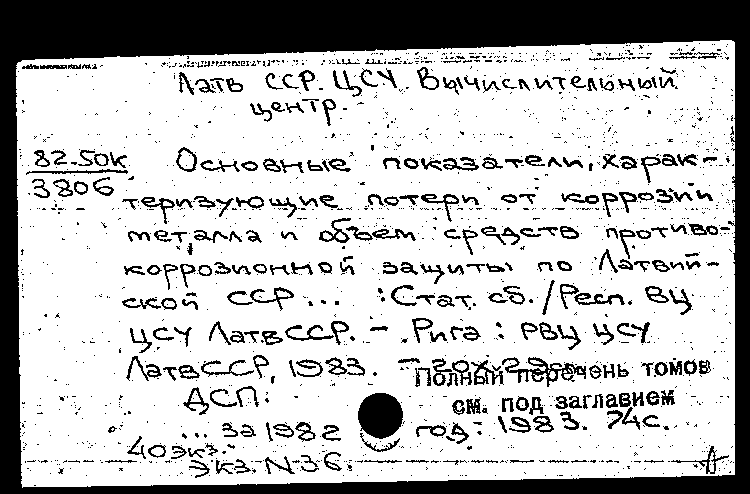 Латв ССР. ЦСУ. Вычислительный
центр.
82-50К
3806
Основные показатели, харак-
теризующие потери от коррозии
металла и объем средств противо-
коррозионной защиты по Латвий-
ской ССР... : Стат. сб. / Респ. ВЦ
ЦСУ ЛатвССР. - Рига : РВЦ ЦСУ
ЛатвССР, 1983. - 20х29см.
Полный перечень томов
ДСП.
см. под заглавием
... за 1982 год. 1983. 74с.
40экз.
Экз. N36.